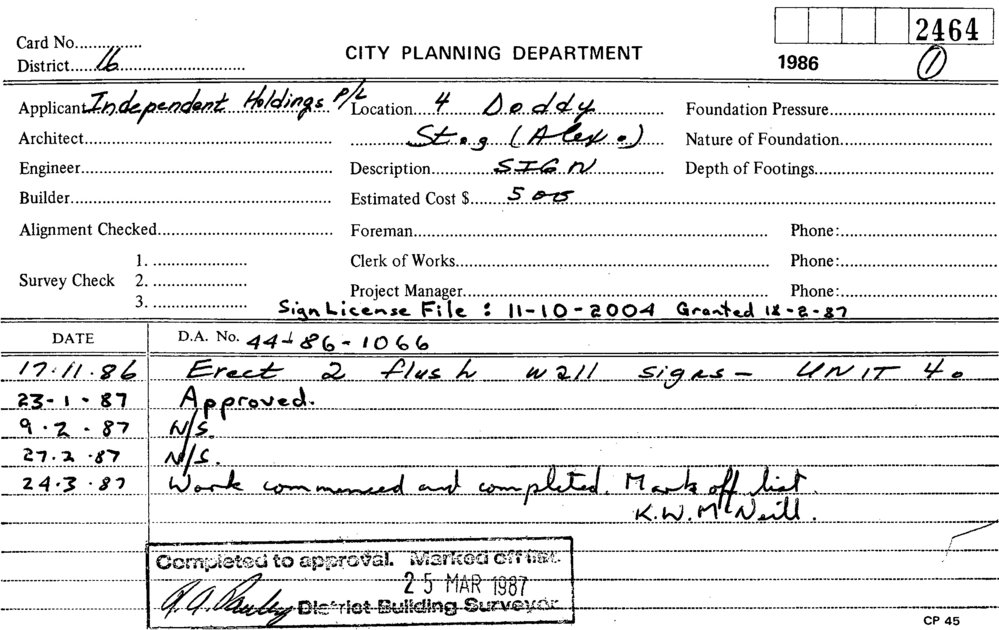 2464
Card No...............
District.....16.....................
CITY PLANNING DEPARTMENT
1986
1
Applicant Independent Holdings P/L Location... 4 Doddy
Foundation Pressure
Architect
St.,g (Alex.)
Nature of Foundation
Engineer
Description SIGN
Depth of Footings
Builder
Estimated Cost $ 500
Alignment Checked
Foreman
Phone:
Survey Check
1.
2.
3.
Clerk of Works
Phone:
Project Manager
Phone:
Sign License File : 11-10-2004 Granted 18-2-87
DATE
D.A. No. 44-86-1066
17.11.86 Erect 2 flush wall signs - UNIT 4.
23-1-87 Approved.
9.2.87 N/S.
27.2.87 N/S.
24.3.87 Work commenced and completed. Mark off list.
K.W. McNeill.
Completed to approval. Marked off list.
25 MAR 1987
District Building Surveyor
CP 45